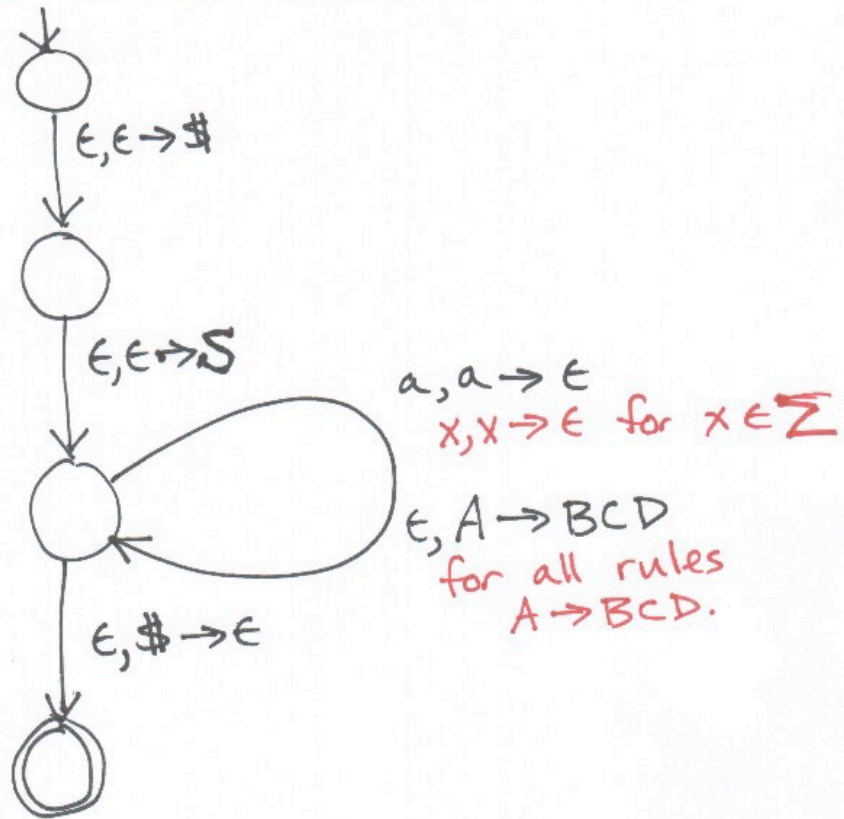 ε,ε→$
ε,ε→S
a,a→ε
x,x→ε for x∈Σ
ε,A→BCD
for all rules
A→BCD.
ε,$→ε